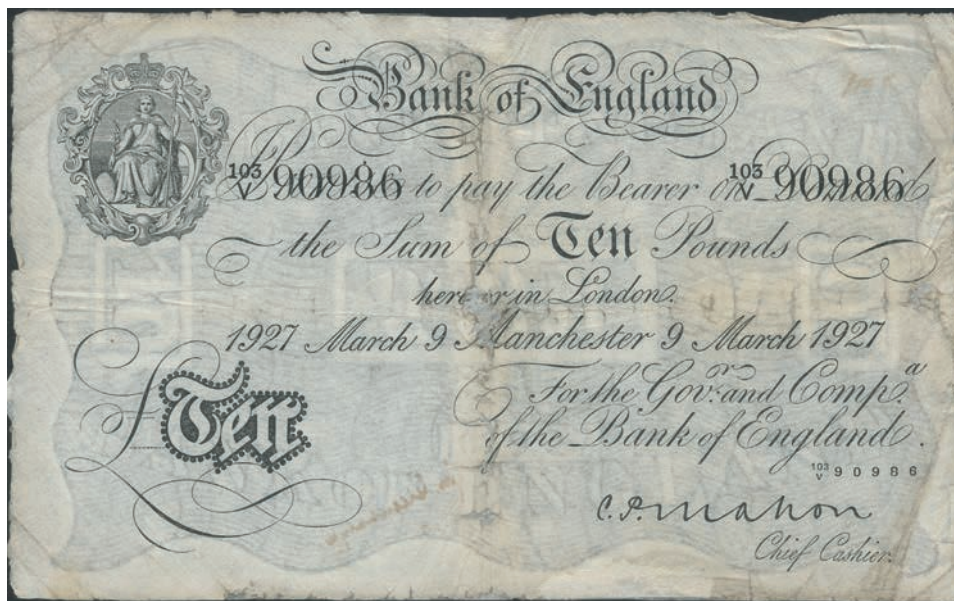 Bank of England
Promise to pay the Bearer on Demand
103/V 90986 103/V 90986
the Sum of Ten Pounds
here or in London.
1927 March 9 Manchester 9 March 1927
For the Govr. and Compa.
of the Bank of England.
£Ten
103/V 90986
C. P. Mahon
Chief Cashier.